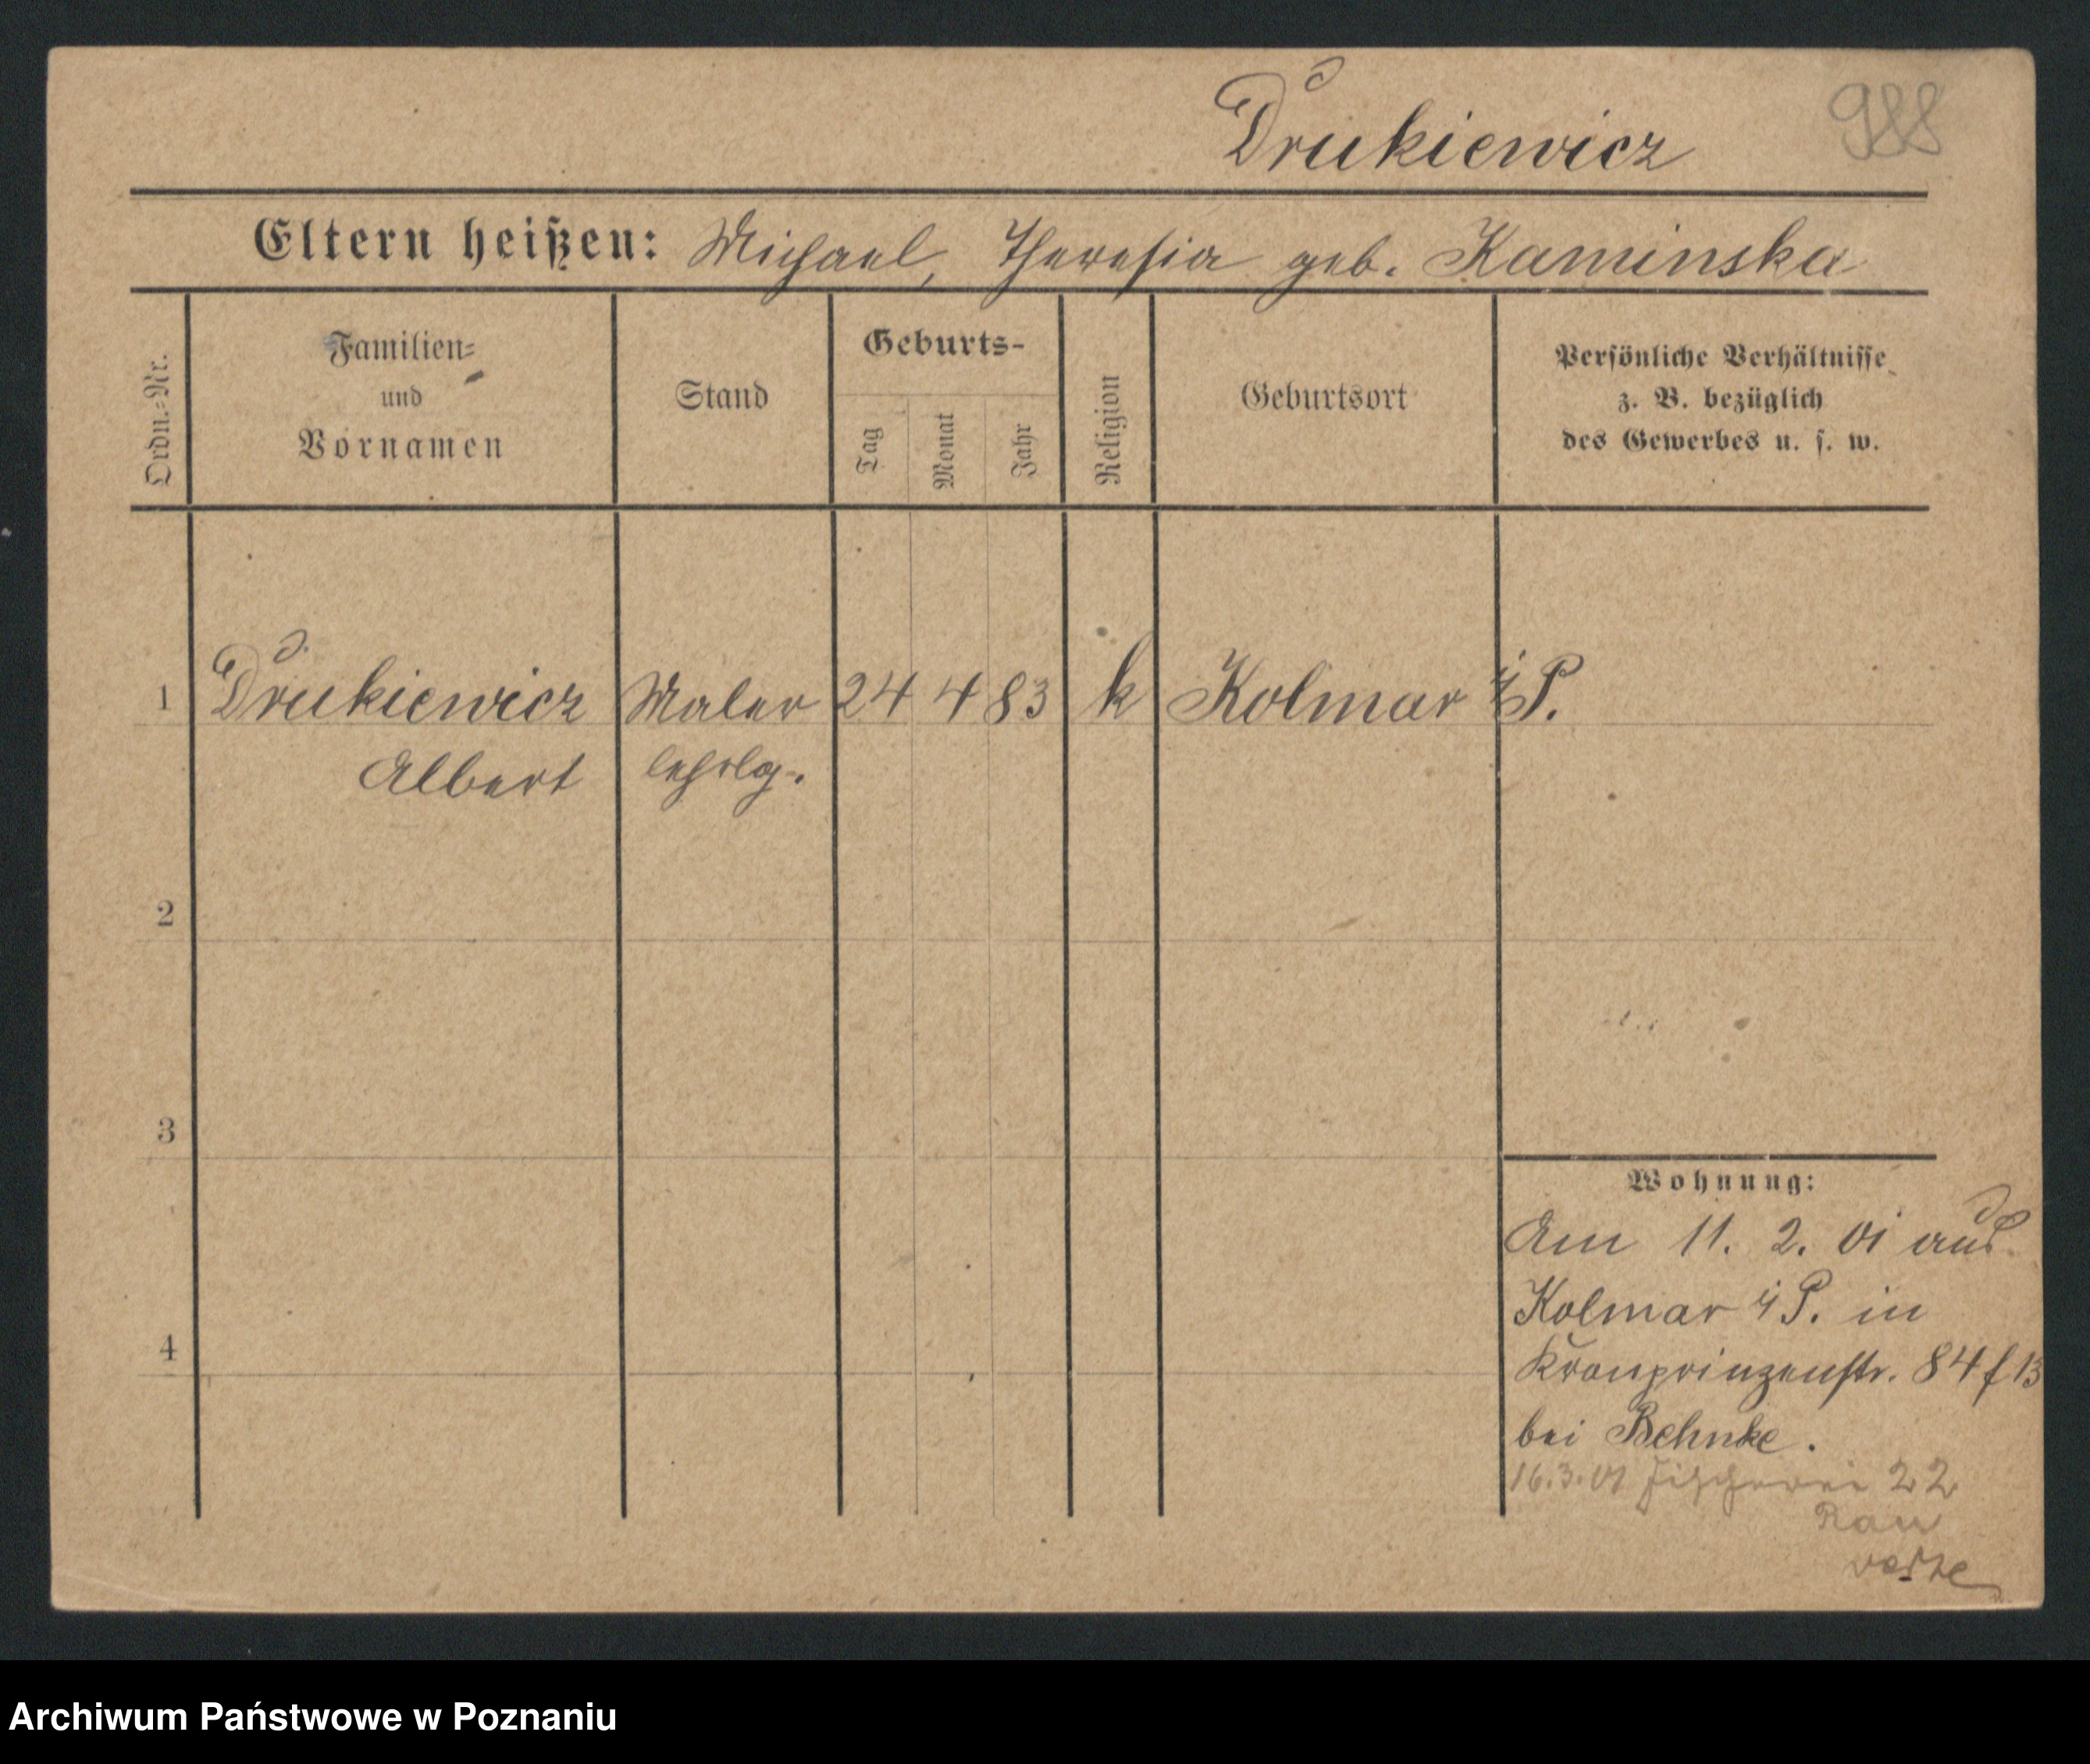 Drukiewicz
988
Eltern heißen: Michael, Theresia geb. Kaminska
Ordn.-Nr.
Familien-
und
Vornamen
Stand
Geburts-
Tag
Monat
Jahr
Religion
Geburtsort
Persönliche Verhältnisse
z. B. bezüglich
des Gewerbes u. s. w.
1 Drukiewicz Maler 24 4 83 k Kolmar i P.
Albert lehrlg.
2
3
4
Wohnung:
Am 11. 2. 01 aus
Kolmar i P. in
Kronprinzenstr. 84 f 13
bei Behnke.
16.3.01 Fischerei 22
Archiwum Państwowe w Poznaniu